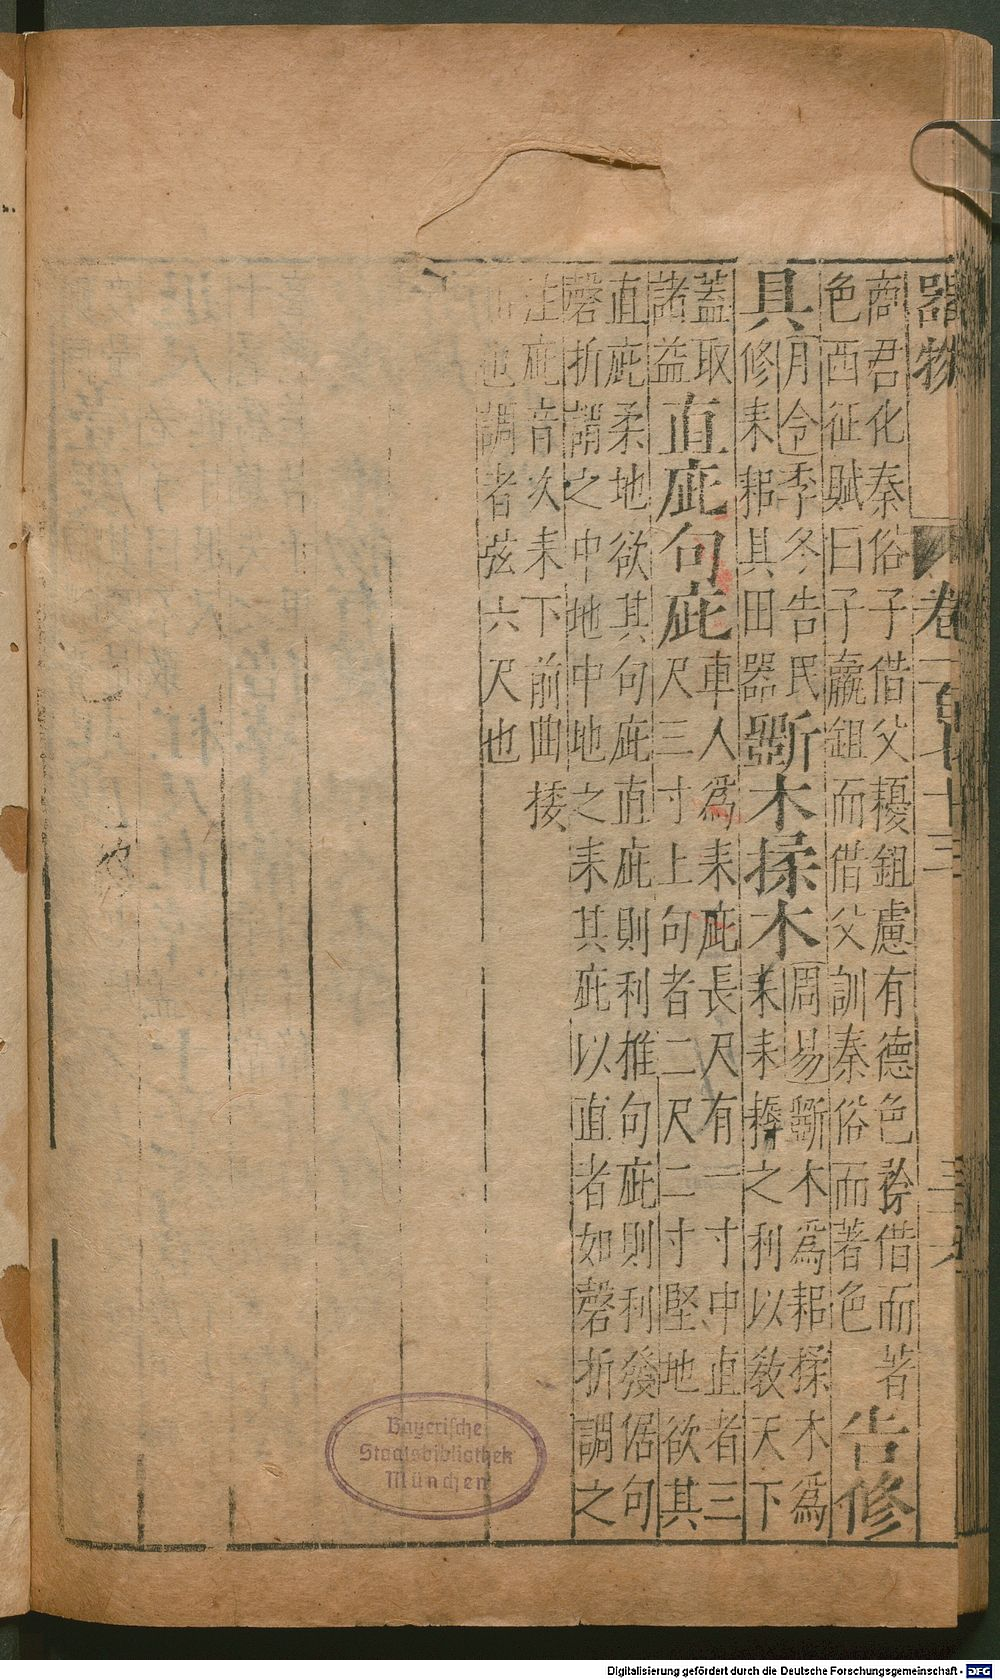 器物 卷一百七十三
商君化秦俗子借父耰鉏慮有德色
色西征賦曰子贏鋤而借父訓秦俗而著色
告修
具
月令季冬告民
修耒耜具田器
斷木揉木
周易斷木為耜揉木為
耒耒耨之利以教天下
蓋取
諸益
直庇句庇
車人為耒庇長尺有一寸中直者三
尺三寸上句者二尺二寸堅地欲其
直庇柔地欲其句庇直庇則利推句庇則利發倨句
磬折謂之中地中地之耒其庇以直者如磬折調之
注庇音次耒下前曲接
也調者弦六尺也
Bayerische
Staatsbibliothek
München
Digitalisierung gefördert durch die Deutsche Forschungsgemeinschaft - DFG